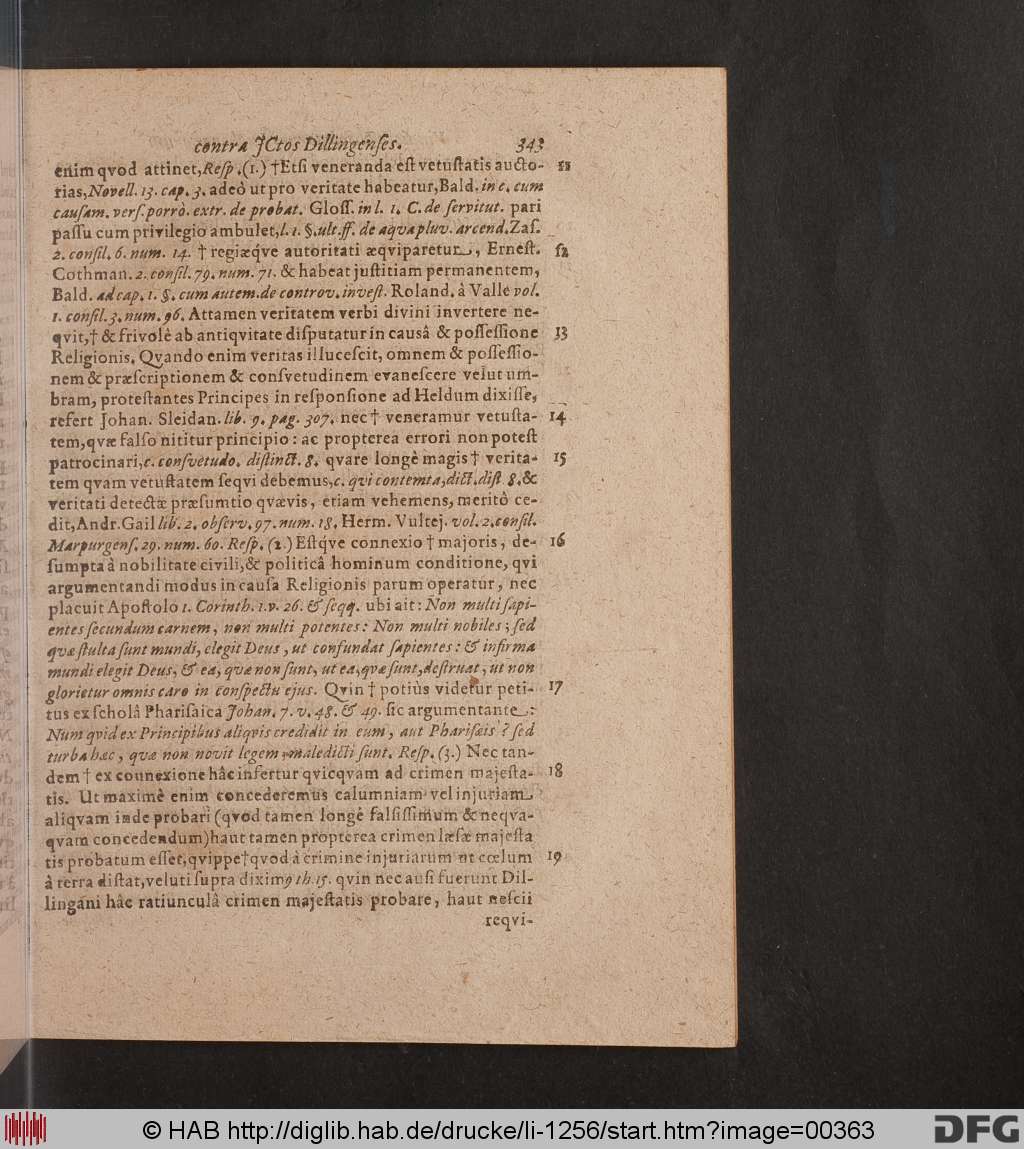 contra JCtos Dillingenses. 343
enim qvod attinet, Resp. (1.) † Etsi veneranda est vetustatis aucto- 11
ritas, Novell. 13. cap. 3. adeò ut pro veritate habeatur, Bald. in c. cum
causam. vers. porrò. extr. de probat. Gloss. in l. 1. C. de servitut. pari
passu cum privilegio ambulet, l. 1. §. ult. ff. de aqva pluv. arcend. Zas.
2. consil. 6. num. 14. † regiæqve autoritati æqviparetur, Ernest. 12
Cothman. 2. consil. 79. num. 71. & habeat justitiam permanentem,
Bald. ad cap. 1. §. cum autem. de controv. invest. Roland. à Valle vol.
1. consil. 3. num. 96. Attamen veritatem verbi divini invertere ne-
qvit, † & frivolè ab antiqvitate disputatur in causâ & possessione 13
Religionis. Qvando enim veritas illucescit, omnem & possessio-
nem & præscriptionem & consvetudinem evanescere velut um-
bram, protestantes Principes in responsione ad Heldum dixisse,
refert Johan. Sleidan. lib. 9. pag. 307. nec † veneramur vetusta- 14
tem, qvæ falso nititur principio: ac propterea errori non potest
patrocinari, c. consvetudo. distinct. 8. qvare longè magis † verita- 15
tem qvam vetustatem seqvi debemus, c. qvi contemta, dict. dist 8. &
veritati detectæ præsumtio qvævis, etiam vehemens, meritò ce-
dit, Andr. Gail lib. 2. observ. 97. num. 18. Herm. Vultej. vol. 2. consil.
Marpurgens. 29. num. 60. Resp. (2.) Estqve connexio † majoris, de- 16
sumpta à nobilitate civili, & politicâ hominum conditione, qvi
argumentandi modus in causa Religionis parum operatur, nec
placuit Apostolo 1. Corinth. 1. v. 26. & seqq. ubi ait: Non multi sapi-
entes secundum carnem, non multi potentes: Non multi nobiles; sed
qvæ stulta sunt mundi, elegit Deus, ut confundat sapientes: & infirma
mundi elegit Deus, & ea, qvæ non sunt, ut ea, qvæ sunt, destruat, ut non
glorietur omnis caro in conspectu ejus. Qvin † potiùs videtur peti- 17
tus ex scholâ Pharisaica Johan. 7. v. 48. & 49. sic argumentante:
Num qvid ex Principibus aliqvis credidit in eum, aut Pharisæis? sed
turba hæc, qvæ non novit legem, maledicti sunt. Resp. (3.) Nec tan-
dem † ex connexione hâc infertur qvicqvam ad crimen majesta- 18
tis. Ut maximè enim concederemus calumniam vel injuriam
aliqvam inde probari (qvod tamen longè falsissimum & neqva-
qvam concedendum) haut tamen propterea crimen læsæ majesta
tis probatum esset, qvippe † qvod à crimine injuriarum ut cœlum 19
à terra distat, veluti supra diximꝰ th. 15. qvin nec ausi fuerunt Dil-
lingani hâc ratiunculâ crimen majestatis probare, haut nescii
reqvi-
© HAB http://diglib.hab.de/drucke/li-1256/start.htm?image=00363
DFG